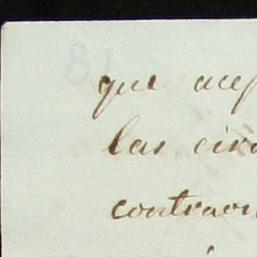 que acep
las circ
contrari